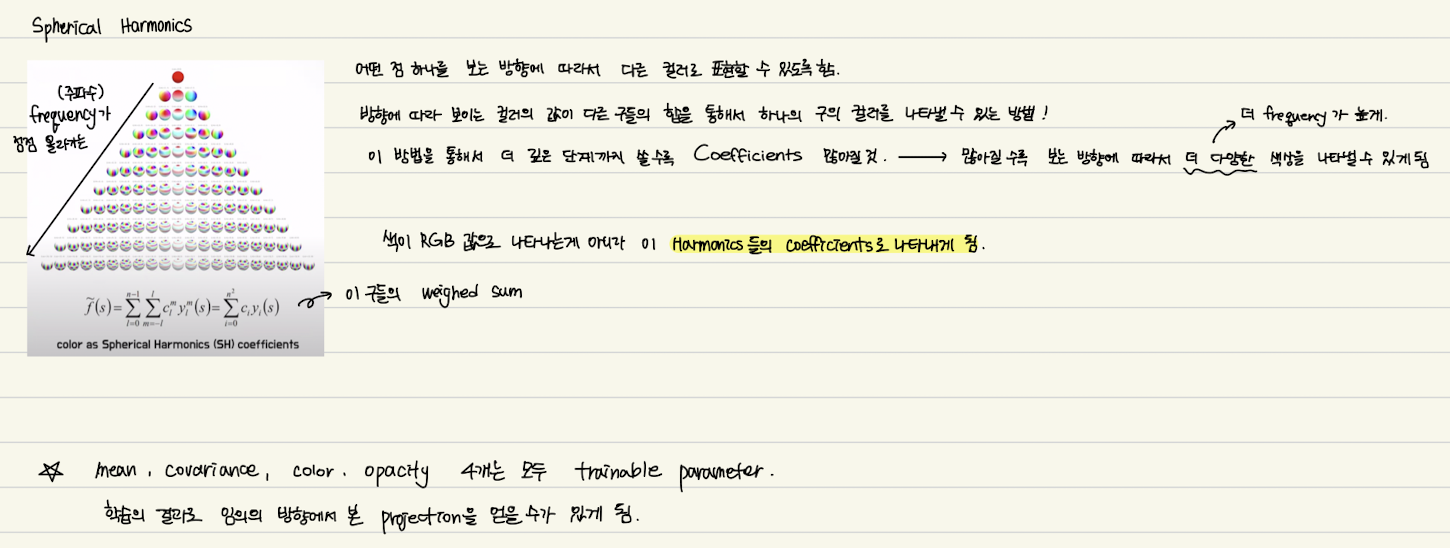 Spherical Harmonics
(주파수)
frequency가
점점 올라가는
$\tilde{f}(s)=\sum_{l=0}^{n-1}\sum_{m=-l}^{l}c_l^m y_l^m(s)=\sum_{i=0}^{n^2}c_i y_i(s)$
color as Spherical Harmonics (SH) coefficients
어떤 점 하나를 보는 방향에 따라서 다른 컬러로 표현할 수 있도록 함.
방향에 따라 보이는 컬러의 값이 다른 구들의 합을 통해서 하나의 구의 컬러를 나타낼 수 있는 방법!
더 frequency가 높게.
이 방법을 통해서 더 깊은 단계까지 쓸수록 Coefficients 많아질 것. → 많아질 수록 보는 방향에 따라서 더 다양한 색상을 나타낼 수 있게 됨
색이 RGB 값으로 나타나는게 아니라 이 Harmonics들의 coefficients로 나타내게 됨.
이 구들의 weighed sum
☆ mean, covariance, color, opacity 4개는 모두 trainable parameter.
학습의 결과로 임의의 방향에서 본 projection을 얻을 수가 있게 됨.